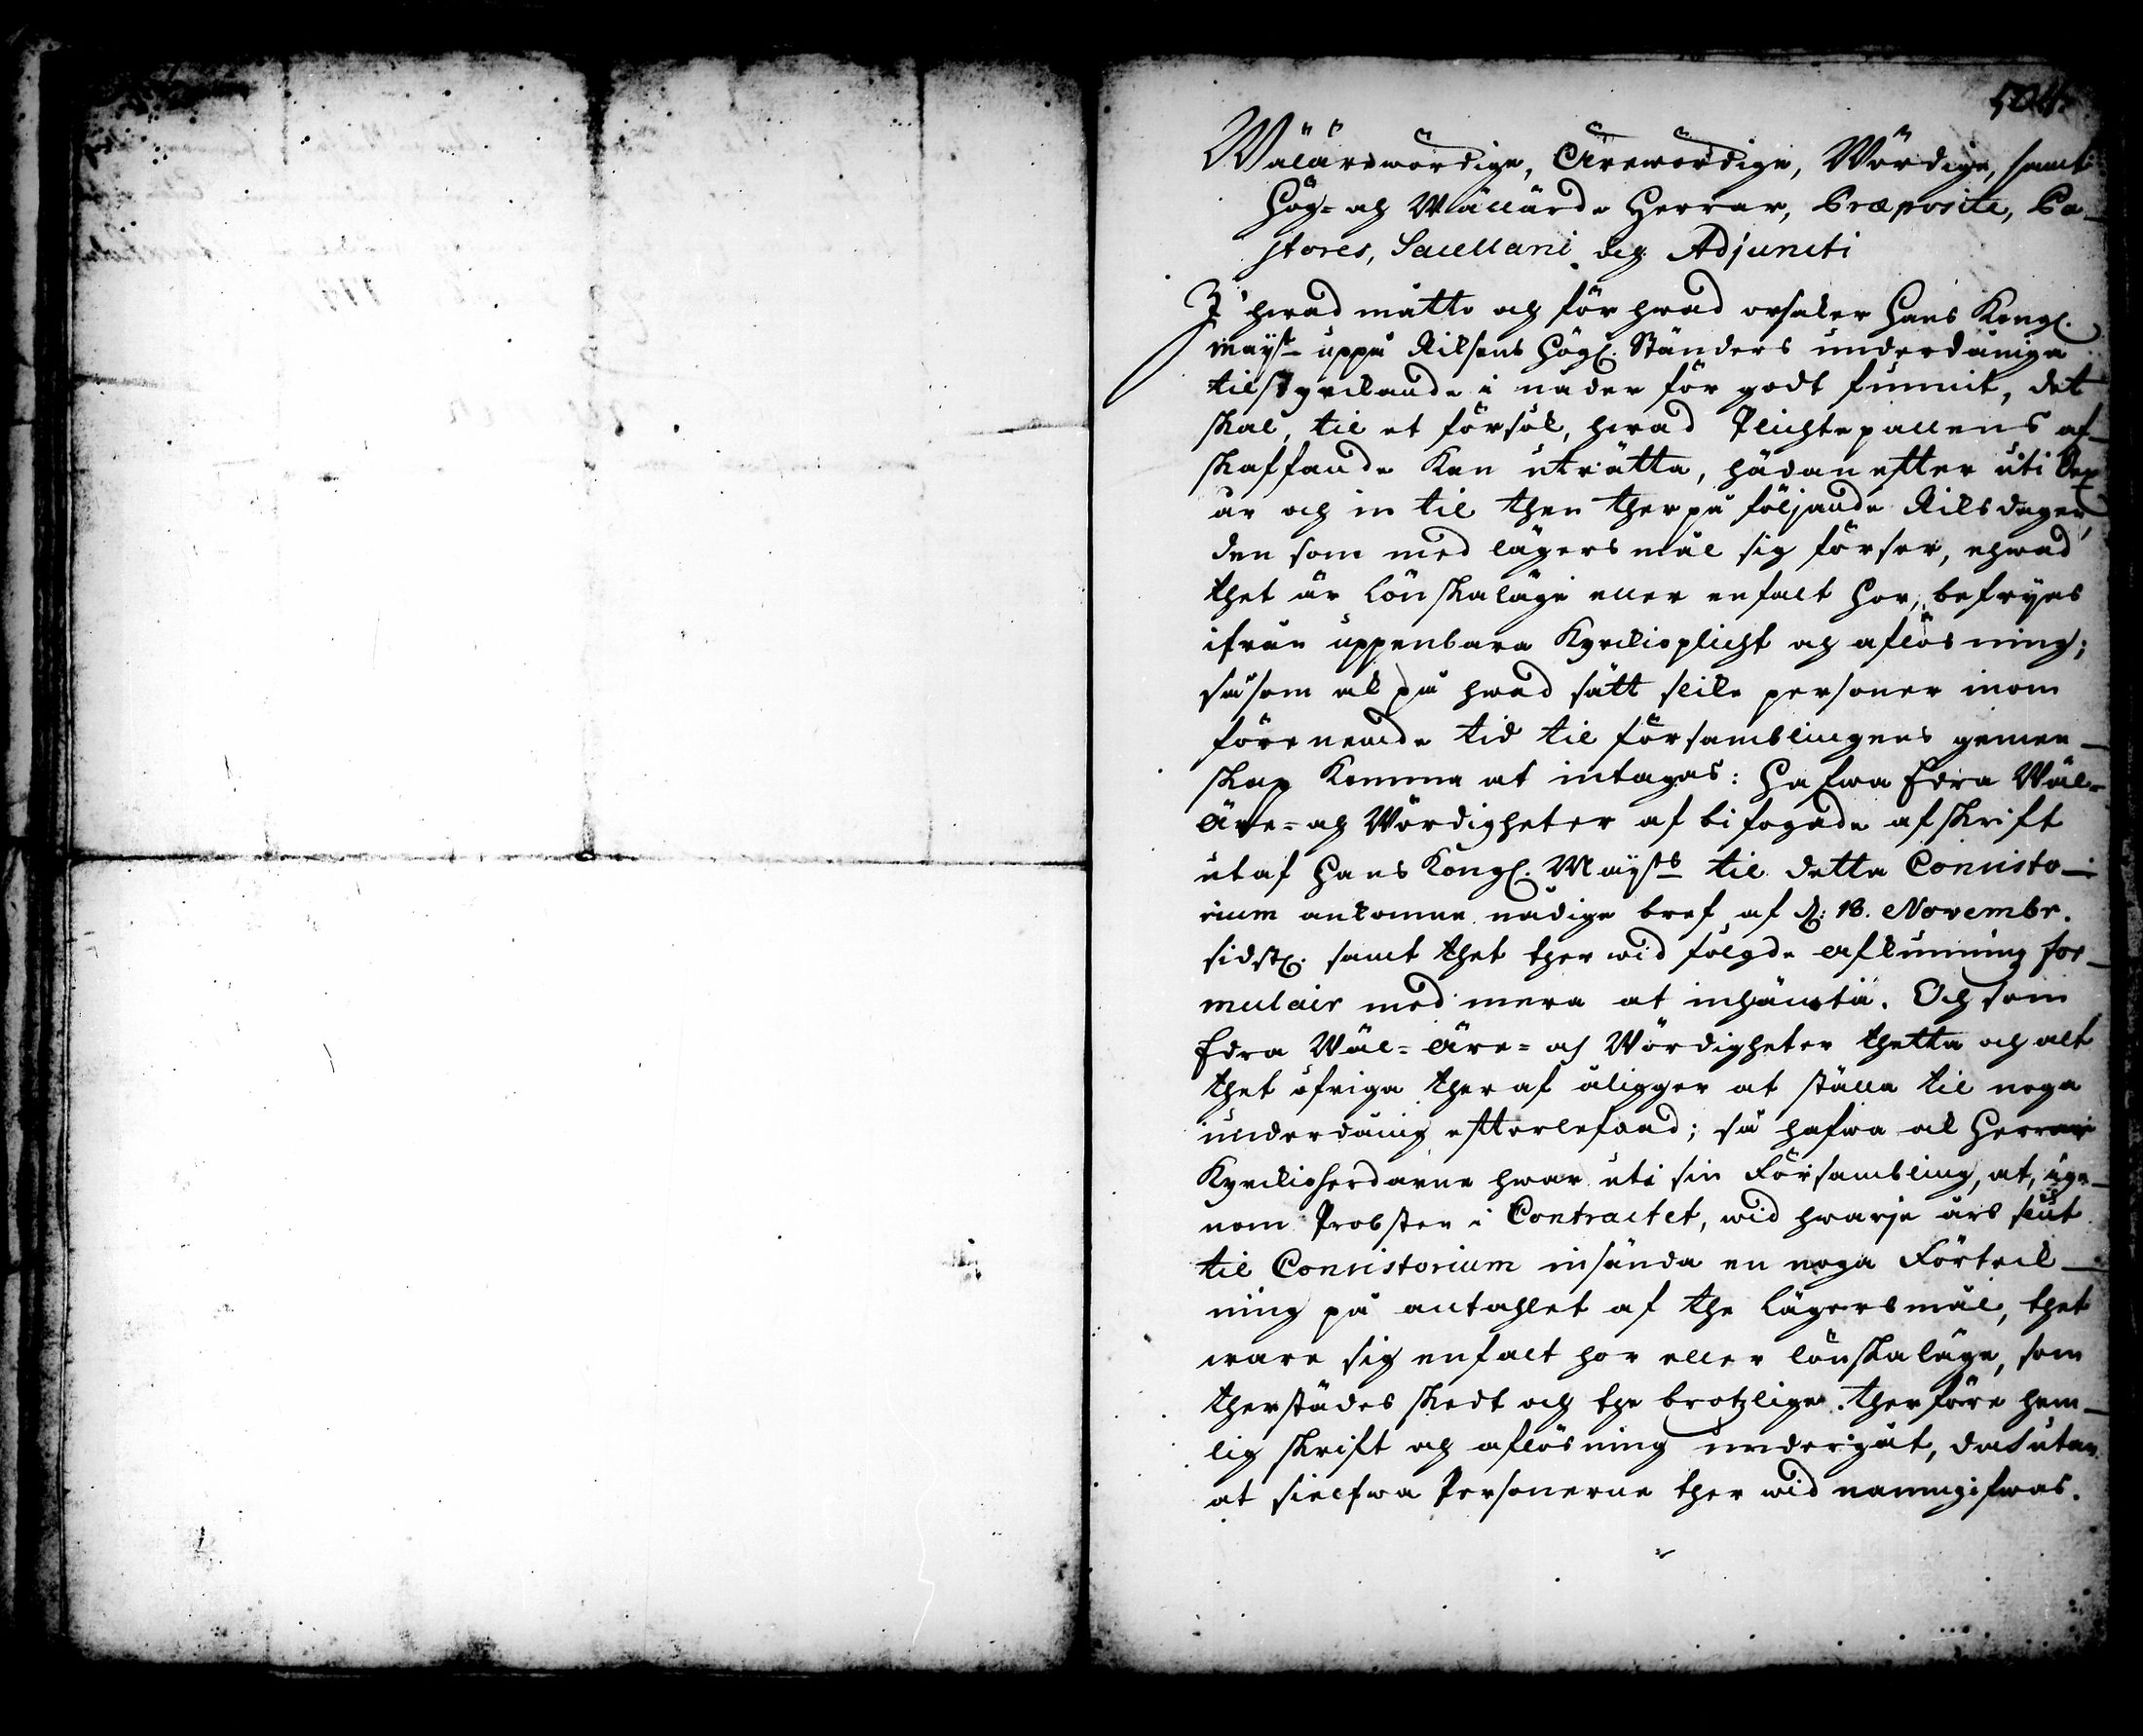 504.
Wälärewördige, Ärewördige, Wördige, samt
Hög- och Wällärde Herrar, Præposite, Pa-
stores, Sacellani och Adjuncti
I hwad måtto och för hwad orsaker Hans Kongl.
Mayst. uppå Riksens Högl. Ständers underdåniga
tilstyrckande i nåder för godt funnit, det
skal, til et försök, hwad Plichtepallens af-
skaffande kan uträtta, hädanefter uti Sex
år och in til then therpå följande Riksdagen,
den som med lägersmål sig förser, ehwad
thet är Lönskaläge eller enfalt Hor, befryas
ifrån uppenbara Kyrckioplicht och aflösning;
såsom ock på hwad sätt slike personer inom
förenemde tid til församblingens gemen-
skap komma at intagas: Hafwa Edra Wäl-
Äre- och Wördigheter af bifogade afskrift
utaf Hans Kongl. Maysts til detta Consisto-
rium ankomne nådige bref af d. 18. Novembr.
sidstl. samt thet ther wid fölgde aflysning for-
mulair med mera at inhämta. Och som
Edra Wäl- Äre- och Wördigheter thetta och alt
thet öfriga theraf åligger at ställa til noga
underdånig efterlefnad; så hafwa ock Herrar
Kyrckioherdarne hwar uti sin Försambling, at, ige-
nom Probsten i Contractet, wid hwarje års slut
til Consistorium insända en noga Förteck-
ning på antahlet af the Lägersmål, thet
ware sig enfalt hor eller lönskaläge, som
therstädes skedt och the brotzlige therföre hem-
lig skrift och aflösning undergåt, dock utan
at sielfwa Personerne ther wid namngifwas.